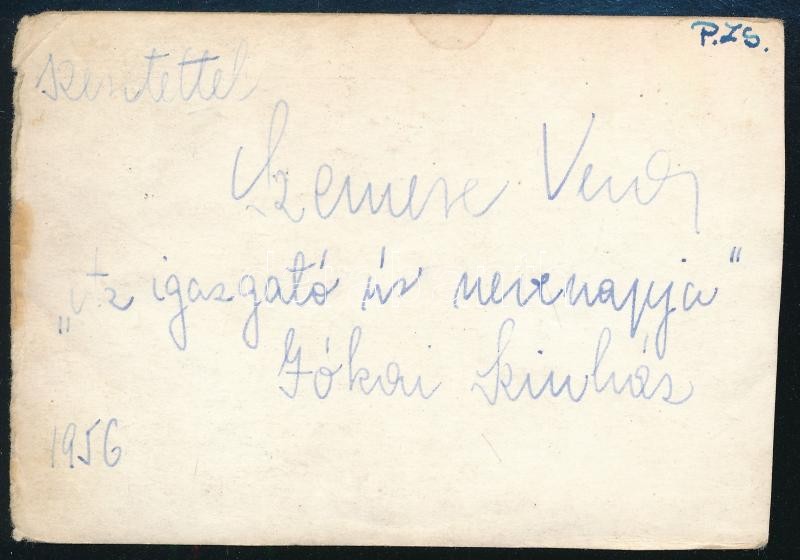 P.ZS.
szeretettel
Szemere Vera
„Az igazgató úr nevenapja"
Jókai Szinház
1956